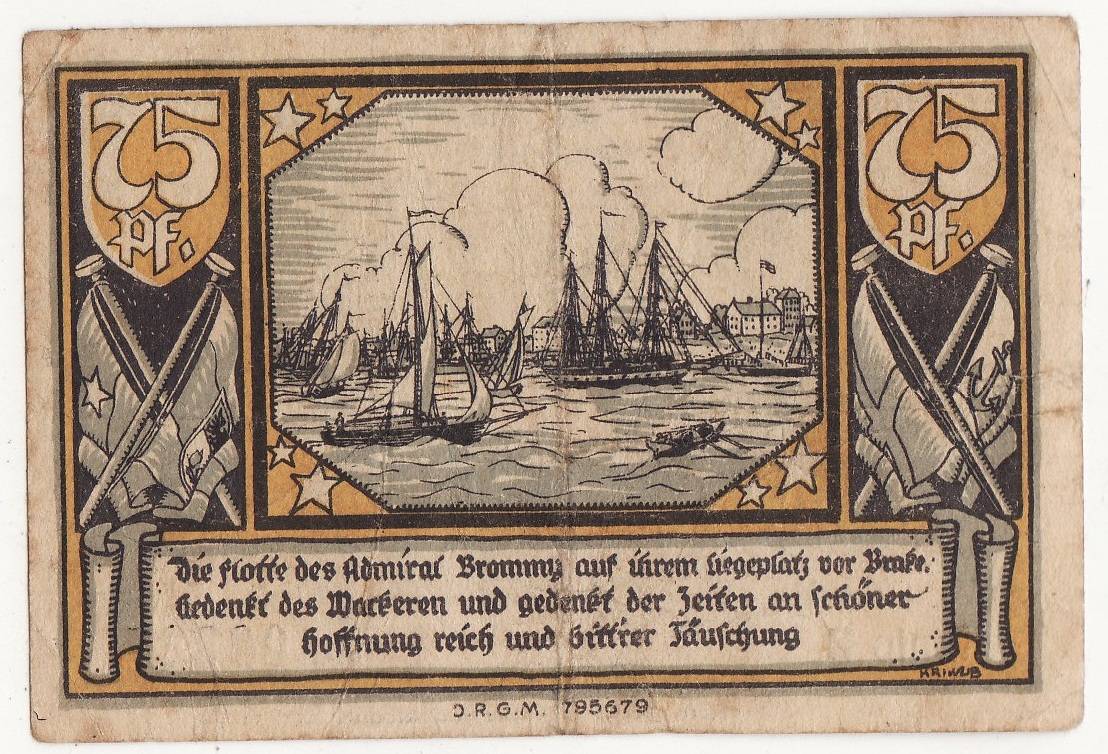 75 75
Pf. Pf.
Die Flotte des Admiral Brommy auf ihrem Liegeplatz vor Brake.
Gedenkt des Wackeren und gedenkt der Zeiten an schöner
Hoffnung reich und bittrer Täuschung
D.R.G.M. 795679